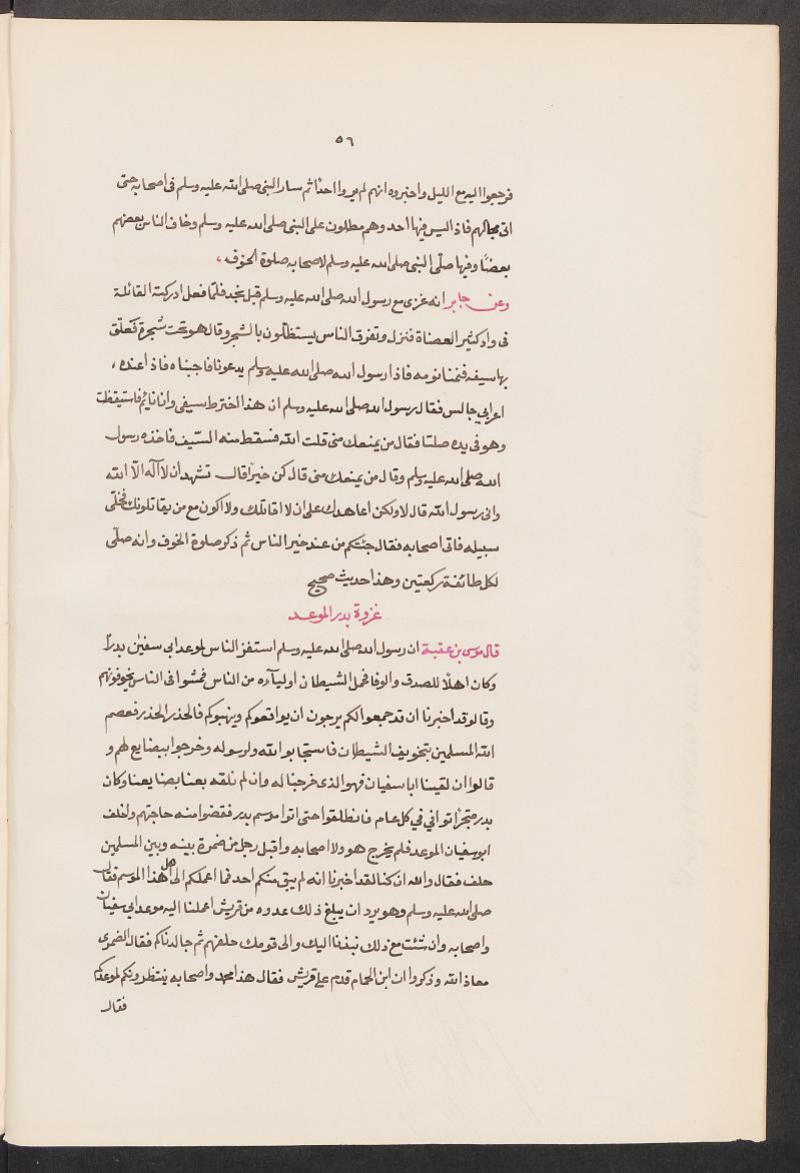 ٥٦
فرجعوا اليه مع الليل واخبروه انهم لم يروا احدًا ثم سار النبى صلى الله عليه وسلم فى اصحابه حتى
اتى محالهم فاذا ليس فيها احد وهم مطلون على النبى صلى الله عليه وسلم وخاف الناس بعضهم
بعضًا وفيها صلّى النبى صلى الله عليه وسلم لاصحابه صلوة الخوف،
وعن جابر انه غزى مع رسول الله صلى الله عليه وسلم قبل نجد فلمّا قفل ادركته القائلة
فى واد كثير العضاة فنزل وتفرق الناس يستظلّون بالشجر وقال هو تحت شجرة فعلّق
بها سيفه فنمنا نومه فاذا رسول الله صلى الله عليه وسلم يدعونا فاجبناه فاذا عنده،
اعرابي جالس فقال رسول الله صلى الله عليه وسلم ان هذا اخترط سيفى وانا نائم فاستيقظت
وهو فى يده صلتا فقال من يمنعك منى قلت الله فسقط منه السّيف فاخذه رسول
الله صلى الله عليه وسلم وقال من يمنعك منى قال كن خيرًا قال تشهد ان لا آله الّا الله
وانى رسول الله قال لا ولكن اعاهدك على ان لا اقاتلك ولا اكون مع من يقاتلونك فخلّى
سبيله فاتى اصحابه فقال جئتكم من عند خير الناس ثم ذكر صلوة الخوف وانه صلّى
لكل طائفة ركعتين وهذا حديث صحيح
غزوة بدر الموعد
قال موسى بن عقبة ان رسول الله صلى الله عليه وسلم استنفز الناس لموعد ابى سفين بدرًا
وكان اهلًا للصدق والوفا فحمل الشيطان اوليآءه من الناس فمشوا فى الناس يخوفونهم
وقالو قد اخبرنا ان قد جمعوا لكم يرجون ان يواقعوكم وينهبوكم فالحذر الحذر فعصم
الله المسلمين بتخويف الشيطان فاستجابو الله ولرسوله وخرجوا ببضايع لهم و
قالوا ان لقينا ابا سفيان فهو الذى خرجنا له وان لم نلقه بعنا بضايعنا وكان
بدر متجرًا توانى في كل عام فانطلقوا حتى اتوا موسم بدر فقضوا منه حاجتهم واخلف
ابو سفيان الموعد فلم يخرج هو ولا اصحابه واقبل رجل من ضمرة بينه وبين المسلمين
حلف فقال والله ان كنا لقد اخبرنا انه لم يبق منكم احد فما اعملكم الى اهل هذا الموسم فقال
صلى الله عليه وسلم وهو يرد ان يبلغ ذلك عدوه من قريش اعملنا اليه موعد ابى سفيان
واصحابه وان شئت مع ذلك نبذنا اليك والى قومك حلفهم ثم جالدناكم فقال الضمرى
معاذ الله وذكروا ان ابن الحمام قدم على قريش فقال هذا محمد واصحابه ينتظرونكم لموعدكم
فقال